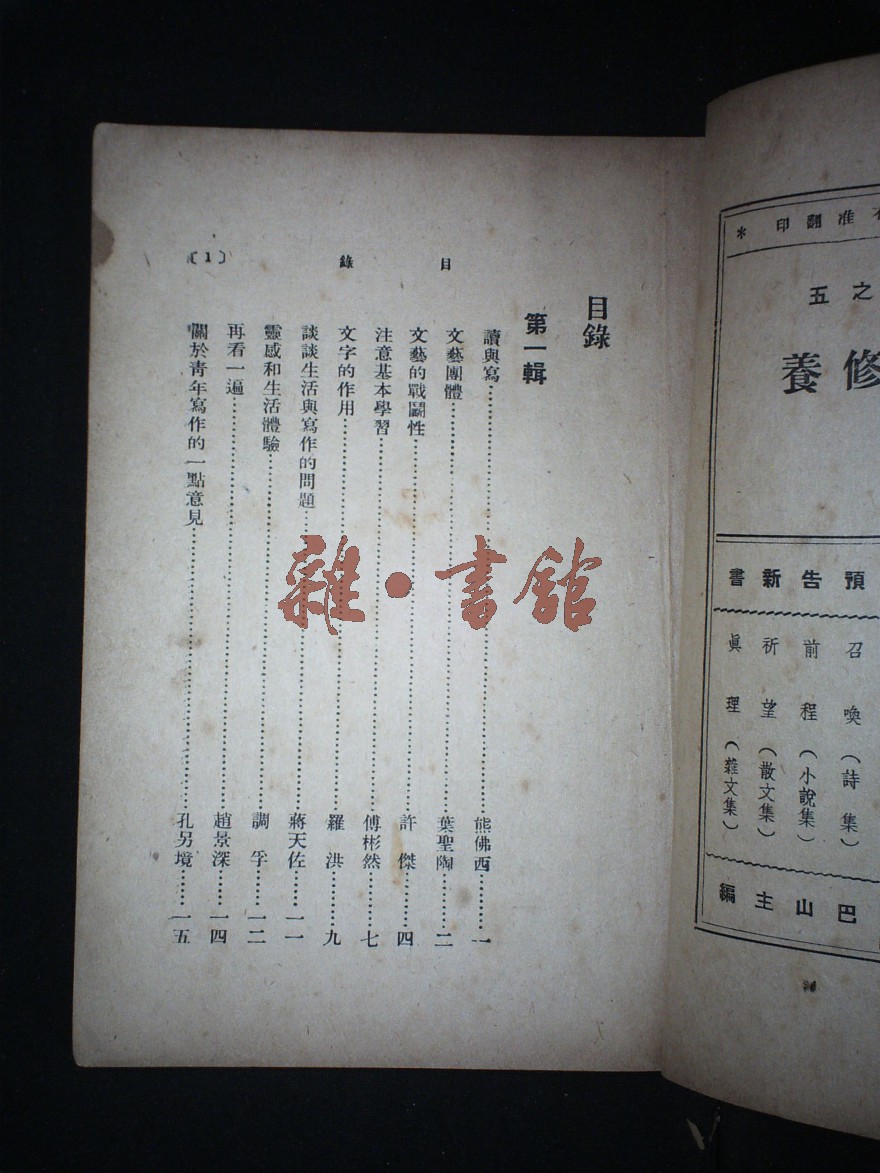 不准翻印 *
之五
修養
預告新書
召喚（詩集）
前程（小說集）
祈望（散文集）
眞理（雜文集）
巴山主編
目錄
〔1〕
目錄
第一輯
讀與寫……熊佛西……一
文藝團體……葉聖陶……二
文藝的戰鬭性……許傑……四
注意基本學習……傅彬然……七
文字的作用……羅洪……九
談談生活與寫作的問題……蔣天佐……一一
靈感和生活體驗……調孚……一二
再看一遍……趙景深……一四
關於靑年寫作的一點意見……孔另境……一五
雜·書館